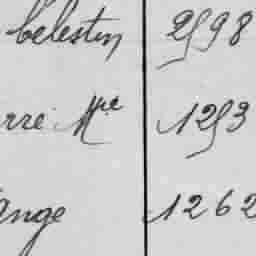 Célestin 2598
rre Mie 1253
ange 1262